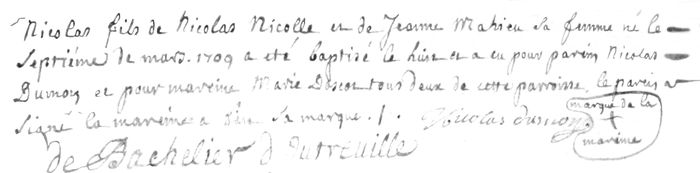 Nicolas fils de Nicolas Nicolle et de Jeanne Mahieu sa femme né le
Septiéme de mars 1709 a eté baptisé le huit et a eu pour parin Nicolas
Dumoy et pour mareine Marie Doscot tous deux de cette parroisse, le parein a
signé la mareine a sa marque . / . Nicolas dumoy
marque de la
+
mareine
de Bachelier d'Outreville